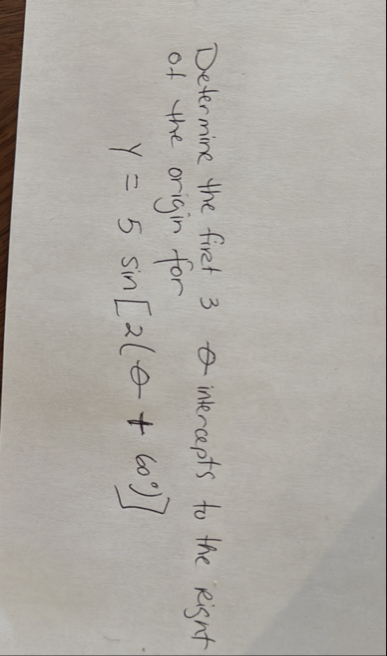 Determine the first 3 θ intercepts to the Right
of the origin for
y = 5 sin[2(θ + 60°)]